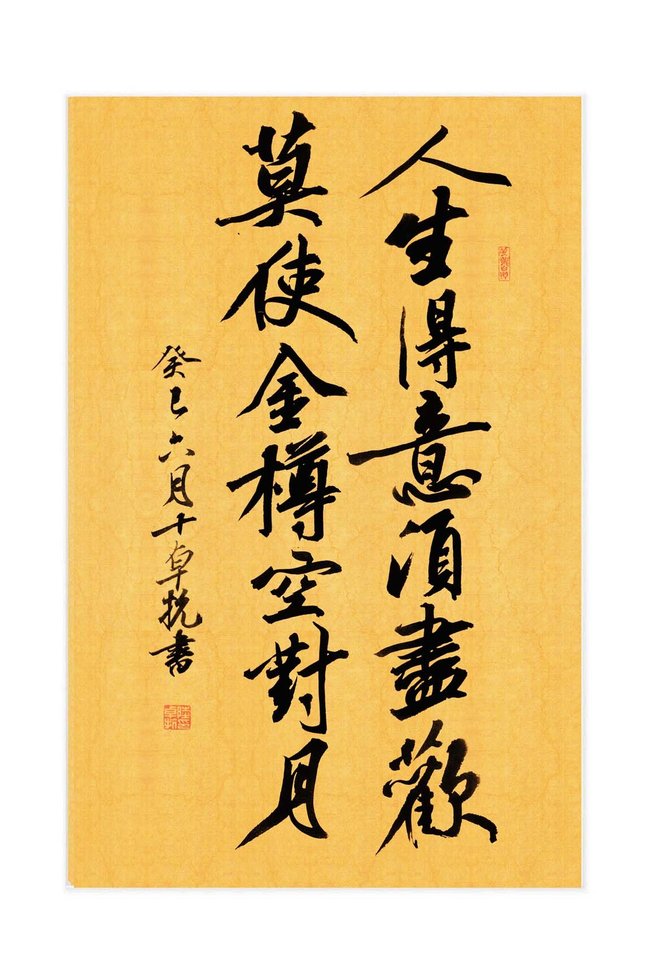 人生得意須盡歡
莫使金樽空對月
癸巳六月十草挽書